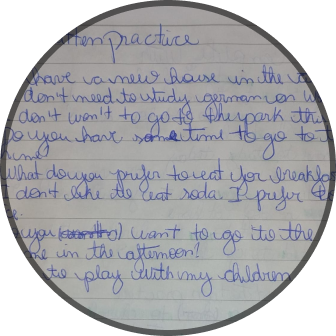 practice
have a new house in the
don't need to study german on
don't won't to go to the park
you have some time to go to
What do you prefer to eat for breakfas
don't like to eat soda. I prefer
you want to go to the
in the afternoon?
to play with my children